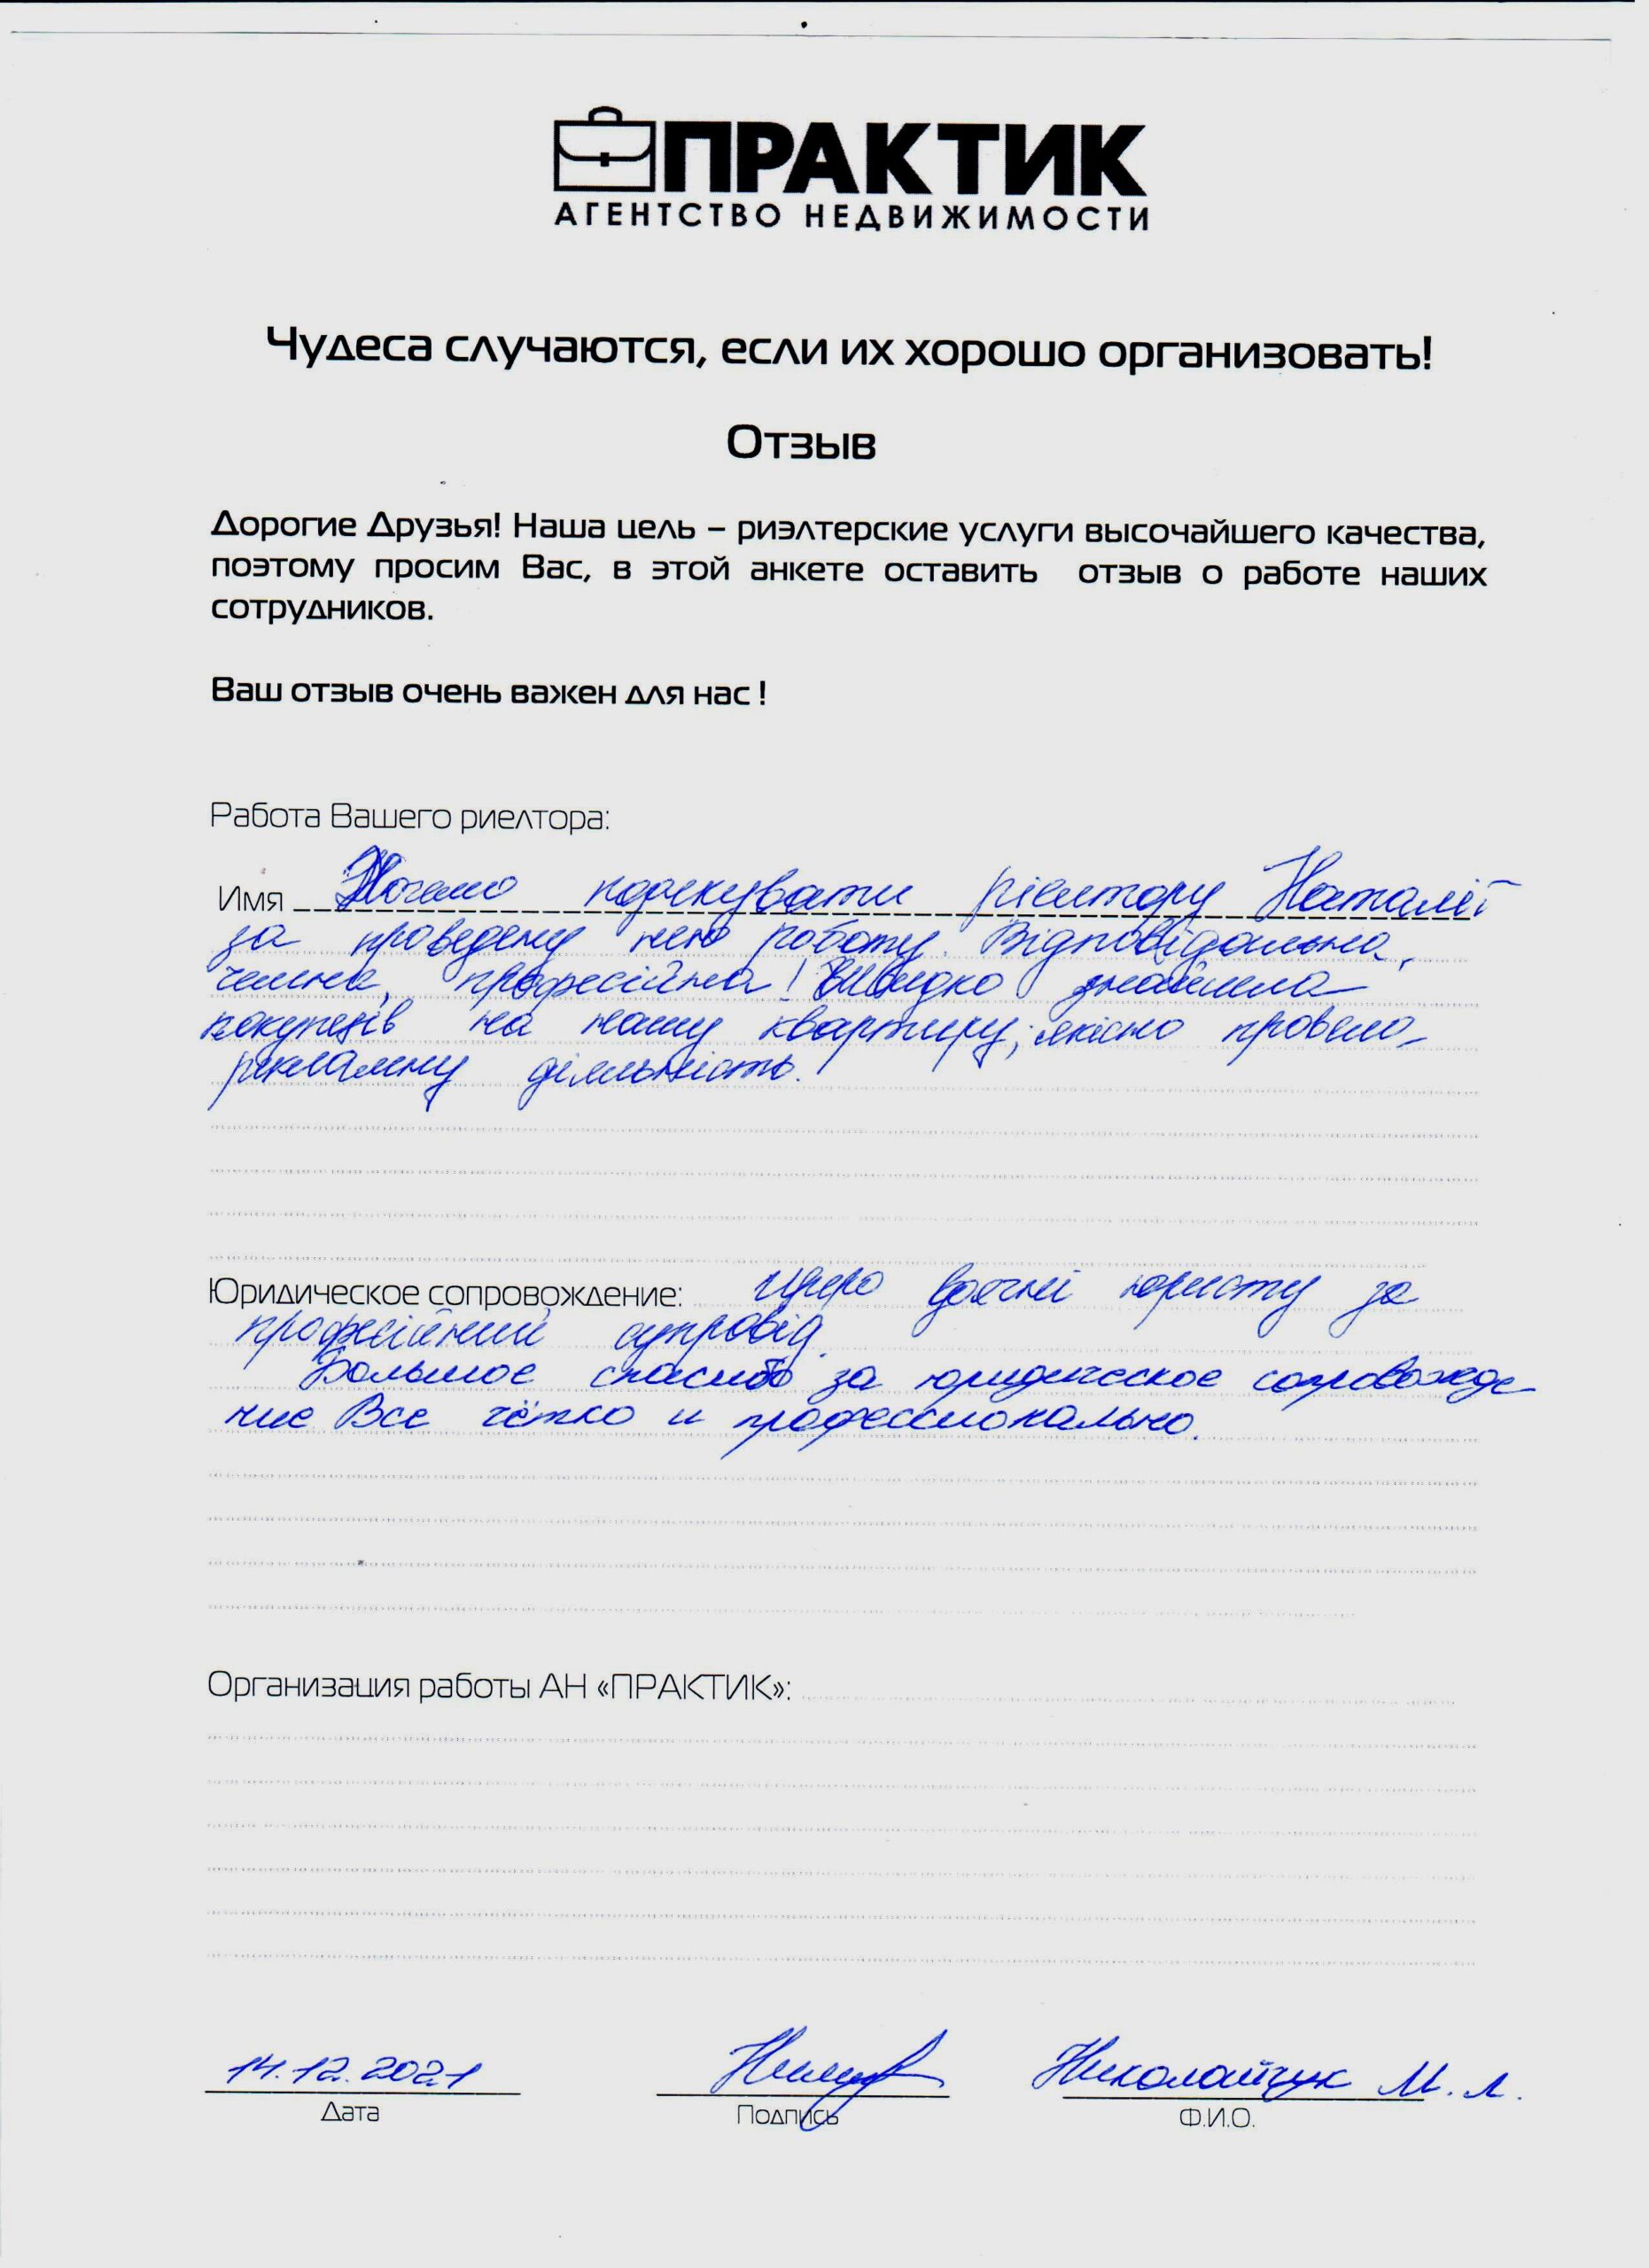 ПРАКТИК
АГЕНТСТВО НЕДВИЖИМОСТИ
Чудеса случаются, если их хорошо организовать!
Отзыв
Дорогие Друзья! Наша цель – риэлтерские услуги высочайшего качества,
поэтому просим Вас, в этой анкете оставить отзыв о работе наших
сотрудников.
Ваш отзыв очень важен для нас !
Работа Вашего риелтора:
Имя Хочемо подякувати ріелтору Наталії
за проведену нею роботу. Відповідальна,
чемна, професійна! Швидко знайшла
покупців на нашу квартиру, якісно провела
рекламну діяльність.
Юридическое сопровождение: Щиро вдячні юристу за
професійний супровід.
Большое спасибо за юридическое сопровожде-
ние Все чётко и профессионально.
Организация работы АН «ПРАКТИК»:
14.12.2021 Николайчук М. Л.
Дата Подпись Ф.И.О.